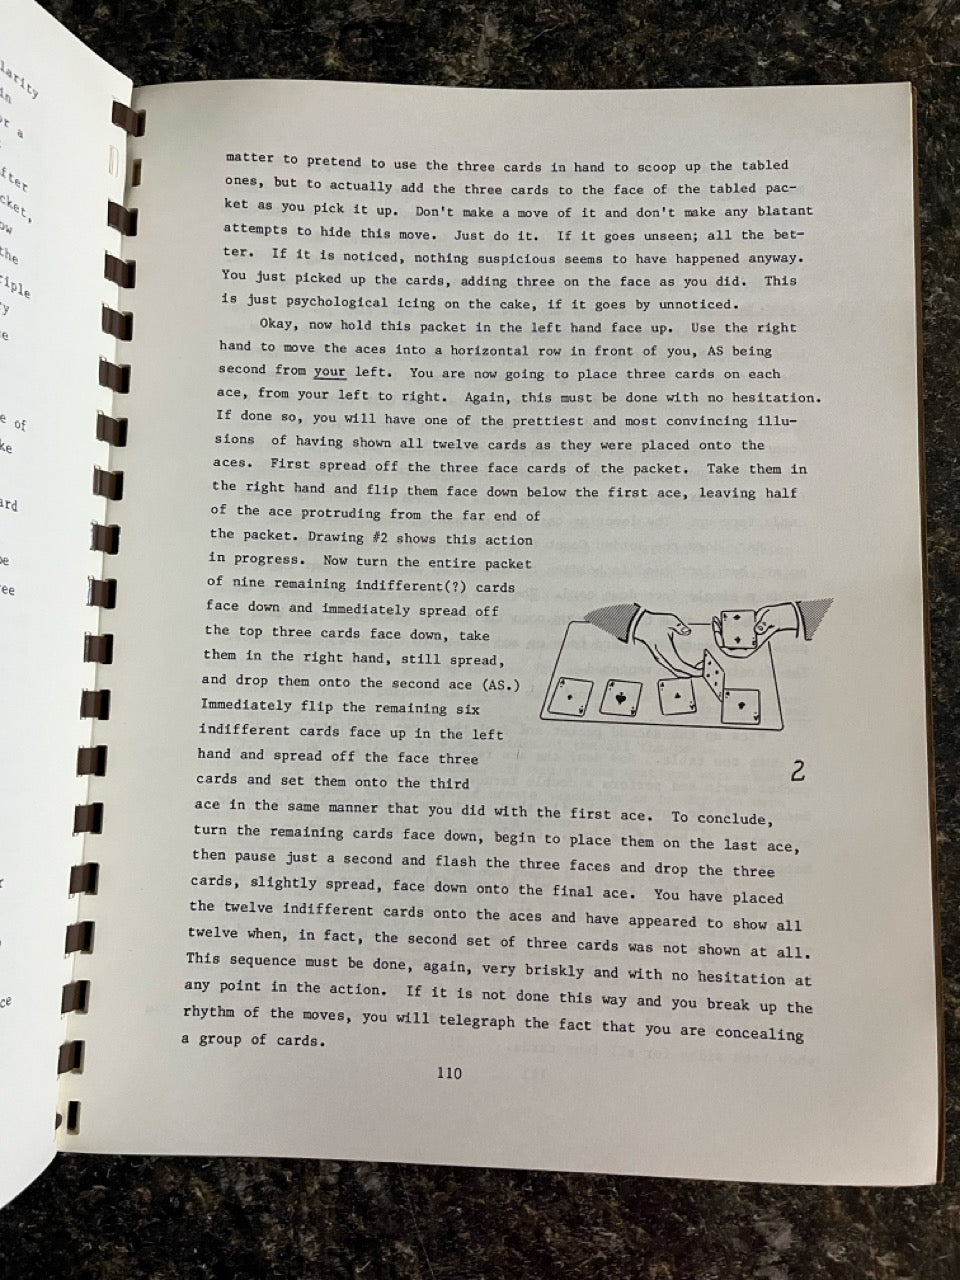 larity
in
or a
fter
cket,
ow
the
riple
ry
e
e of
ke
ard
be
ree
ce
matter to pretend to use the three cards in hand to scoop up the tabled
ones, but to actually add the three cards to the face of the tabled pac-
ket as you pick it up. Don't make a move of it and don't make any blatant
attempts to hide this move. Just do it. If it goes unseen; all the bet-
ter. If it is noticed, nothing suspicious seems to have happened anyway.
You just picked up the cards, adding three on the face as you did. This
is just psychological icing on the cake, if it goes by unnoticed.
Okay, now hold this packet in the left hand face up. Use the right
hand to move the aces into a horizontal row in front of you, AS being
second from your left. You are now going to place three cards on each
ace, from your left to right. Again, this must be done with no hesitation.
If done so, you will have one of the prettiest and most convincing illu-
sions of having shown all twelve cards as they were placed onto the
aces. First spread off the three face cards of the packet. Take them in
the right hand and flip them face down below the first ace, leaving half
of the ace protruding from the far end of
the packet. Drawing #2 shows this action
in progress. Now turn the entire packet
of nine remaining indifferent(?) cards
face down and immediately spread off
the top three cards face down, take
them in the right hand, still spread,
and drop them onto the second ace (AS.)
Immediately flip the remaining six
indifferent cards face up in the left
hand and spread off the face three
cards and set them onto the third
ace in the same manner that you did with the first ace. To conclude,
turn the remaining cards face down, begin to place them on the last ace,
then pause just a second and flash the three faces and drop the three
cards, slightly spread, face down onto the final ace. You have placed
the twelve indifferent cards onto the aces and have appeared to show all
twelve when, in fact, the second set of three cards was not shown at all.
This sequence must be done, again, very briskly and with no hesitation at
any point in the action. If it is not done this way and you break up the
rhythm of the moves, you will telegraph the fact that you are concealing
a group of cards.
2
110